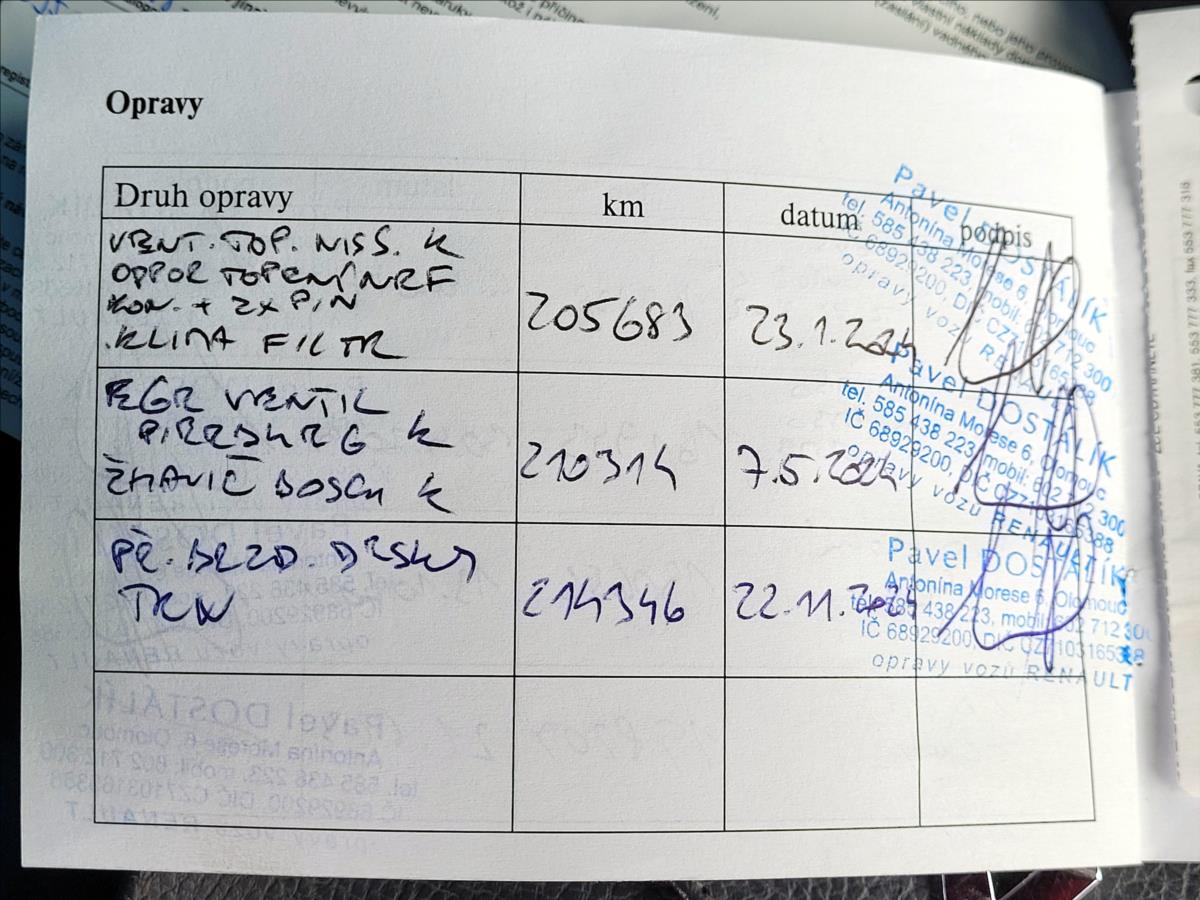 Opravy
Druh opravy km datum podpis
VENT. TOP. NISS. K
ODPOR TOPENÍ NRF
KON. + 2x PIN
KLIMA FILTR
205683 23.1.2024
Pavel DOSTALÍK
Antonína Morese 6, Olomouc
tel. 585 438 223, mobil: 602 712 300
IČ 68929200, DIČ CZ7103165388
opravy vozů RENAULT
EGR VENTIL
PIERBURG K
ŽHAVIČ BOSCH K
210314 7.5.2024
Pavel DOSTALÍK
Antonína Morese 6, Olomouc
tel. 585 438 223, mobil: 602 712 300
IČ 68929200, DIČ CZ7103165388
opravy vozů RENAULT
PŘ. BRZD. DESKY
TRW
214346 22.11.2024
Pavel DOSTALÍK
Antonína Morese 6, Olomouc
tel. 585 438 223, mobil: 602 712 300
IČ 68929200, DIČ CZ7103165388
opravy vozů RENAULT